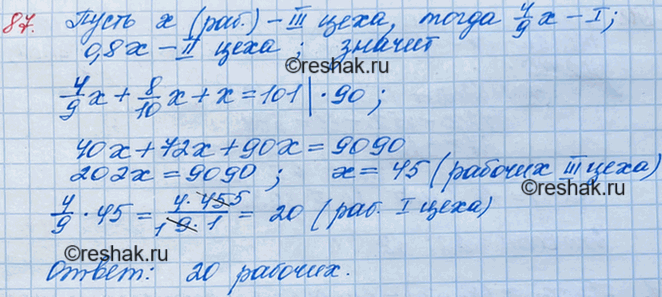 87. Пусть x (раб.) – III цеха, тогда 4/9 x – I;
0,8x – II цеха; значит
reshak.ru
4/9 x + 8/10 x + x = 101 | · 90;
reshak.ru
40x + 72x + 90x = 9090
202x = 9090; x = 45 (рабочих III цеха)
4/9 · 45 = 4 · 45 5 / 1 9 · 1 = 20 (раб. I цеха)
reshak.ru
Ответ: 20 рабочих.
reshak.ru